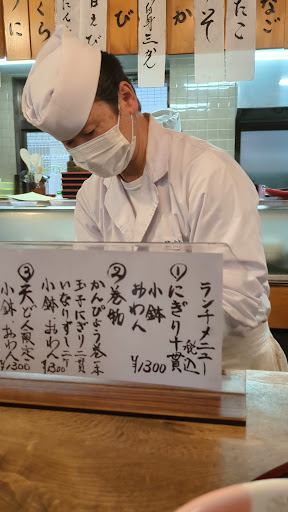 なご
たこ
いそ
か
白身三カん
び
甘えび
にん
くら
に
ランチメニュー
税込
①にぎり十貫
小鉢
おわん
¥1300
②巻物
かんぴょう巻一本
玉子にぎり二貫
いなりずし二ケ
小鉢 おわん
¥1300
③天どん限定
小鉢 おわん
¥1300